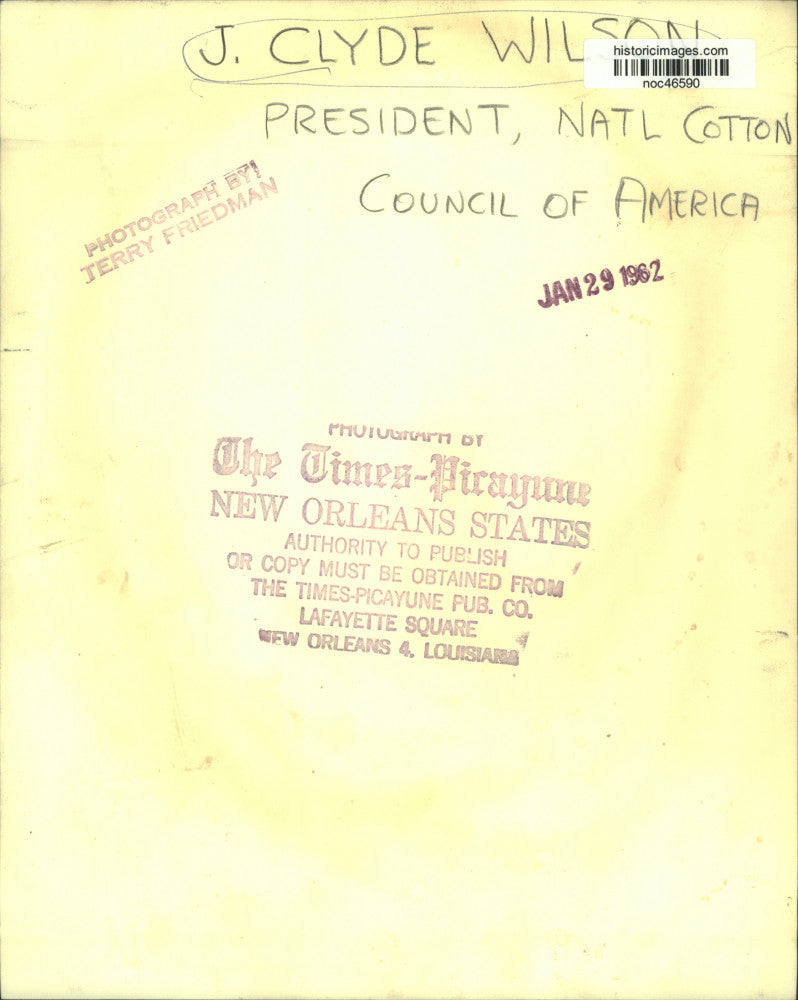 J. CLYDE WILSON
historicimages.com
noc46590
PRESIDENT, NATL COTTON
COUNCIL OF AMERICA
PHOTOGRAPH BY:
TERRY FRIEDMAN
JAN 29 1962
PHOTOGRAPH BY
The Times-Picayune
NEW ORLEANS STATES
AUTHORITY TO PUBLISH
OR COPY MUST BE OBTAINED FROM
THE TIMES-PICAYUNE PUB. CO.
LAFAYETTE SQUARE
NEW ORLEANS 4, LOUISIANA